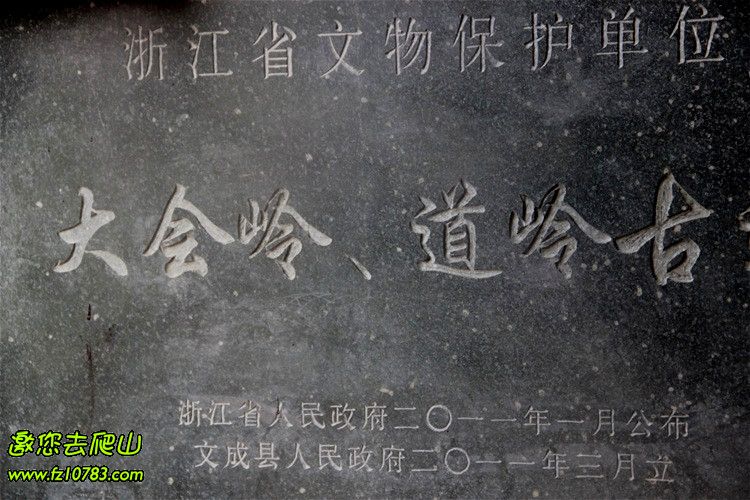 浙江省文物保护单位
大会岭、道岭古
浙江省人民政府二〇一一年一月公布
文成县人民政府二〇一一年三月立
邀您去爬山
www.fz10783.com